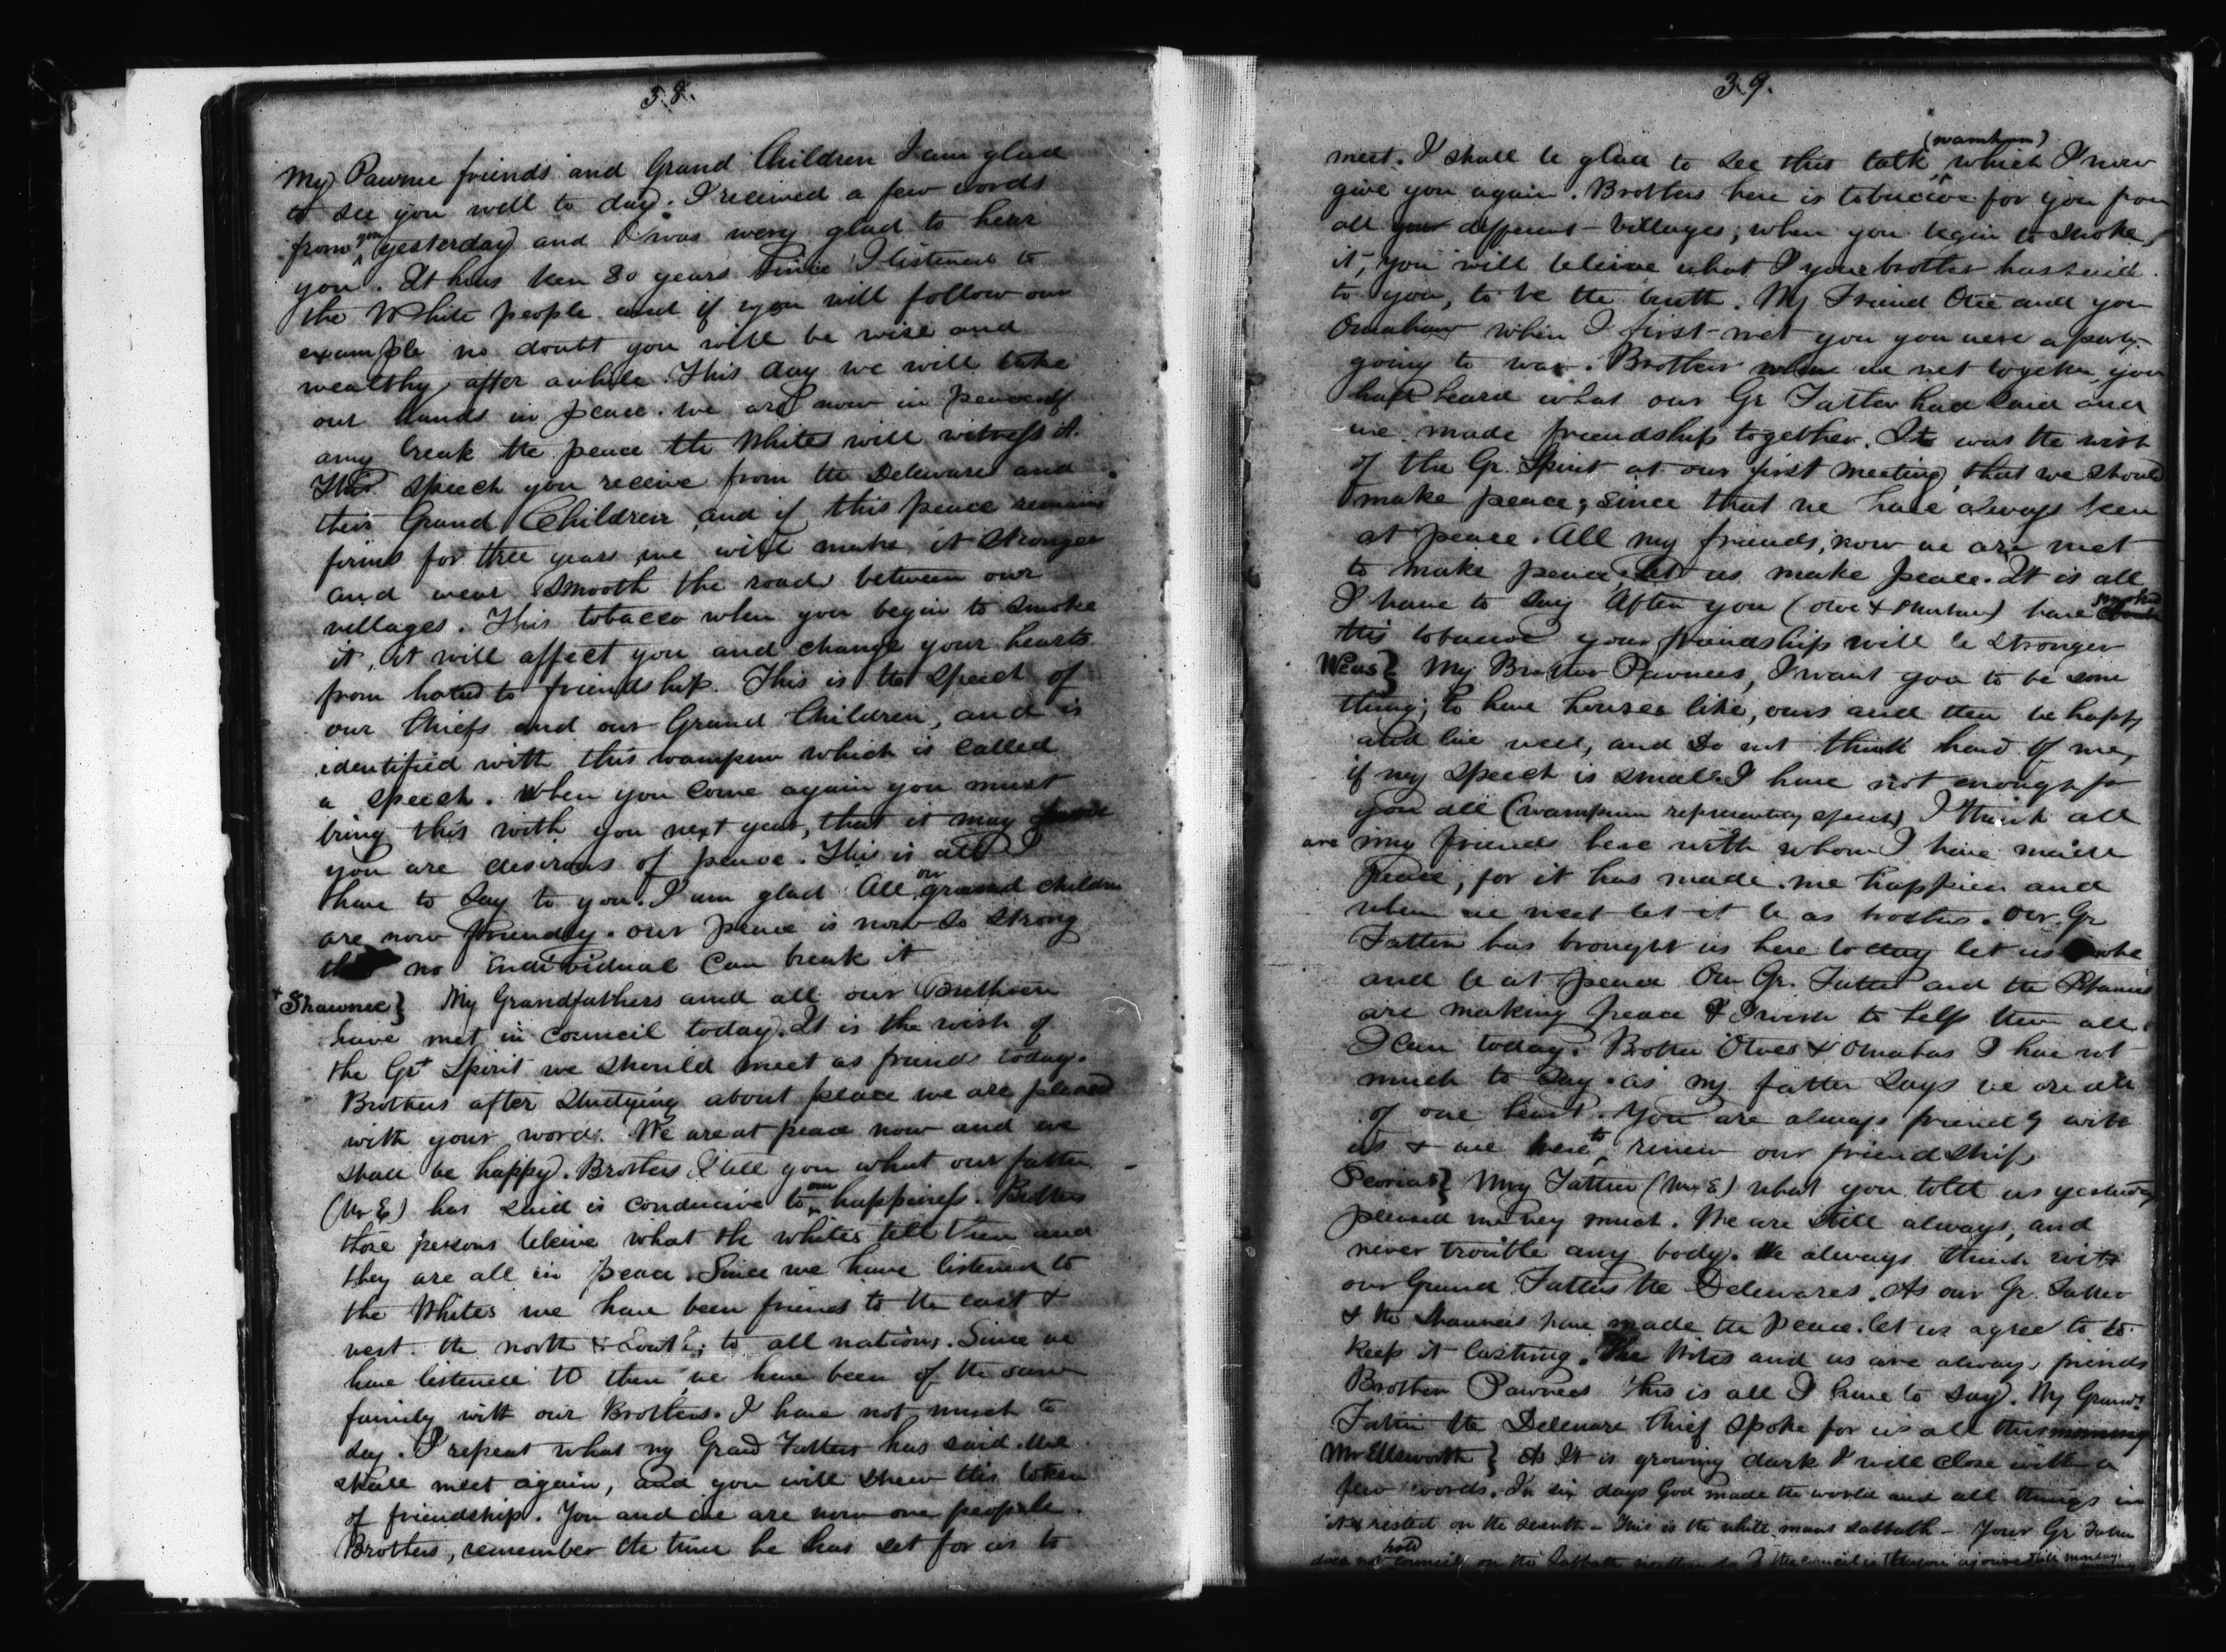 38.
My Pawnee friends and Grand Children I am glad
to see you well to day. I received a few words
from you yesterday and I was very glad to hear
you. It has ben 30 years since I listened to
the White people and if you will follow our
example no doubt you will be wise and
wealthy after awhile. This day we will take
our hands in peace. we are now in peace if
any break the peace the Whites will witness it.
This speech you receive from the Delaware and
their Grand Children, and if this peace remains
firm for three years, we will make it stronger
and wear smooth the road between our
villages. This tobacco when you begin to smoke
it, it will affect you and change your hearts
from hatred to friendship. This is the speech of
our Chiefs and our Grand Children, and is
identified with this wampum which is called
a speech. When you come again you must
bring this with you next year, that it may
you are desirous of peace. This is all I
have to say to you. I am glad All our grand children
are now friendly. our peace is now so strong
that no individual can break it
Shawnee} My Grandfathers and all our Brethren
have met in council today. It is the wish of
the Grt Spirit we should meet as friends today.
Brothers after studying about peace we are pleased
with your words. We are at peace now and we
shall be happy. Brothers I tell you what our father
(Mr E) has said is conducive to our happiness. Brothers
those persons beleive what the whites tell them and
they are all in peace. Since we have listened to
the Whites we have been friends to the east &
west. the north & South; to all nations. Since we
have listened to them we have been of the same
family with our Brothers. I have not much to
say. I repeat what my Grand Fathers has said. We
shall meet again, and you will shew this token
of friendship. You and we are now one people.
Brothers, remember the time he has set for us to
39.
meet. I shall be glad to see this talk (wampum) which I now
give you again. Brothers here is tobaccoe for you from
all your different villages; when you begin to smoke
it, you will beleive what I your brother has said
to you, to be the truth. My Friend Otoe and you
Omahaw when I first met you you were a party
going to war. Brothers when we met together, you
had heard what our Gr Father had said and
we made friendship together. It was the wish
of the Gr. Spirit at our first meeting that we should
make peace; since that we have always been
at peace. All my friends, now we are met
to make peace, let us make peace. It is all
I have to say After you (Otoe & Omahaw) have smoked
this tobaccoe your friendship will be stronger
Weas} My Brother Pawnees, I want you to be some
thing; to have houses like, ours and then be happy
and live well, and do not think hard of me,
if my speech is small. I have not enough for
you all (wampum representing speech) I think all
are my friends here with whom I have made
Peace, for it has made me happier and
when we meet let it be as brothers. Our Gr
Father has brought us here today let us smoke
and be at peace Our Gr. Father and the Pawnees
are making peace & I wish to help them all
I can today. Brother Otoes & Omahas I have not
much to say. as my father says we are all
of one heart. You are always friendly with
us & we here to renew our friendship
Peorias} My Father (Mr E) what you told us yesterday
pleased me very much. We are still always, and
never trouble any body. We always think with
our Grand Fathers the Delewares. As our Gr. Father
& the Shawnees have made the peace. let us agree to to
keep it lasting. The Whites and us are always friends
Brothers Pawnees this is all I have to say. My Grand
Father the Deleware Chief spoke for us all this morning
Mr Ellsworth} As It is growing dark I will close with a
few words. In six days God made the world and all things in
it & rested on the seventh - This is the white mans sabbath - Your Gr Father
does not hold council on the Sabbath the council is adjourned till monday